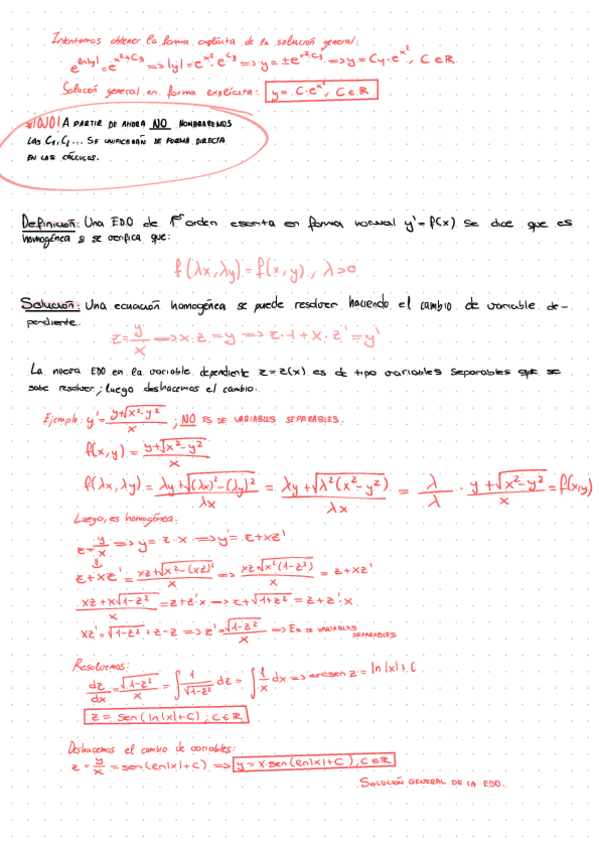 Intentamos obtener la forma explícita de la solución general:
e^{ln|y|} = e^{x²+C₃} => |y| = e^{x²}·e^{C₃} => y = ±e^{x²·C₃} => y = C₄·e^{x²}, C∈ℝ
Solución general en forma explícita: y = C·e^{x²}, C∈ℝ
¡OJO! A PARTIR DE AHORA NO NOMBRAREMOS
LAS C₁, C₂... SE UNIFICARÁN DE FORMA DIRECTA
EN LOS CÁLCULOS.
Definición: Una EDO de 1er orden escrita en forma normal y' = f(x) se dice que es
homogénea si se verifica que:
f(λx, λy) = f(x, y), λ>0
Solución: Una ecuación homogénea se puede resolver haciendo el cambio de variable de-
pendiente.
z = y/x => x·z = y => z·1 + x·z' = y'
La nueva EDO en la variable dependiente z = z(x) es de tipo variables separables que se
sabe resolver; luego deshacemos el cambio.
Ejemplo: y' = (y+√(x²-y²))/x ; NO ES DE VARIABLES SEPARABLES.
f(x,y) = (y+√(x²-y²))/x
f(λx, λy) = (λy+√((λx)²-(λy)²))/(λx) = (λy+√(λ²(x²-y²)))/(λx) = λ/λ · (y+√(x²-y²))/x = f(x,y)
Luego, es homogénea.
z = y/x => y = z·x => y' = z+xz'
⇓
z+xz' = (xz+√(x²-(xz)²))/x => (xz+√(x²(1-z²)))/x = z+xz'
(xz+x√(1-z²))/x = z+z'·x => z+√(1+z²) = z+z'·x
xz' = √(1-z²)+z-z => z' = √(1-z²)/x => ES DE VARIABLES
SEPARABLES
Resolvemos:
dz/dx = √(1-z²)/x = ∫ 1/√(1-z²) dz = ∫ 1/x dx => arcsen z = ln|x|+C
z = sen(ln|x|+C), C∈ℝ
Deshacemos el cambio de variables:
z = y/x = sen(ln|x|+C) => y = x·sen(ln|x|+C), C∈ℝ
SOLUCIÓN GENERAL DE LA EDO.